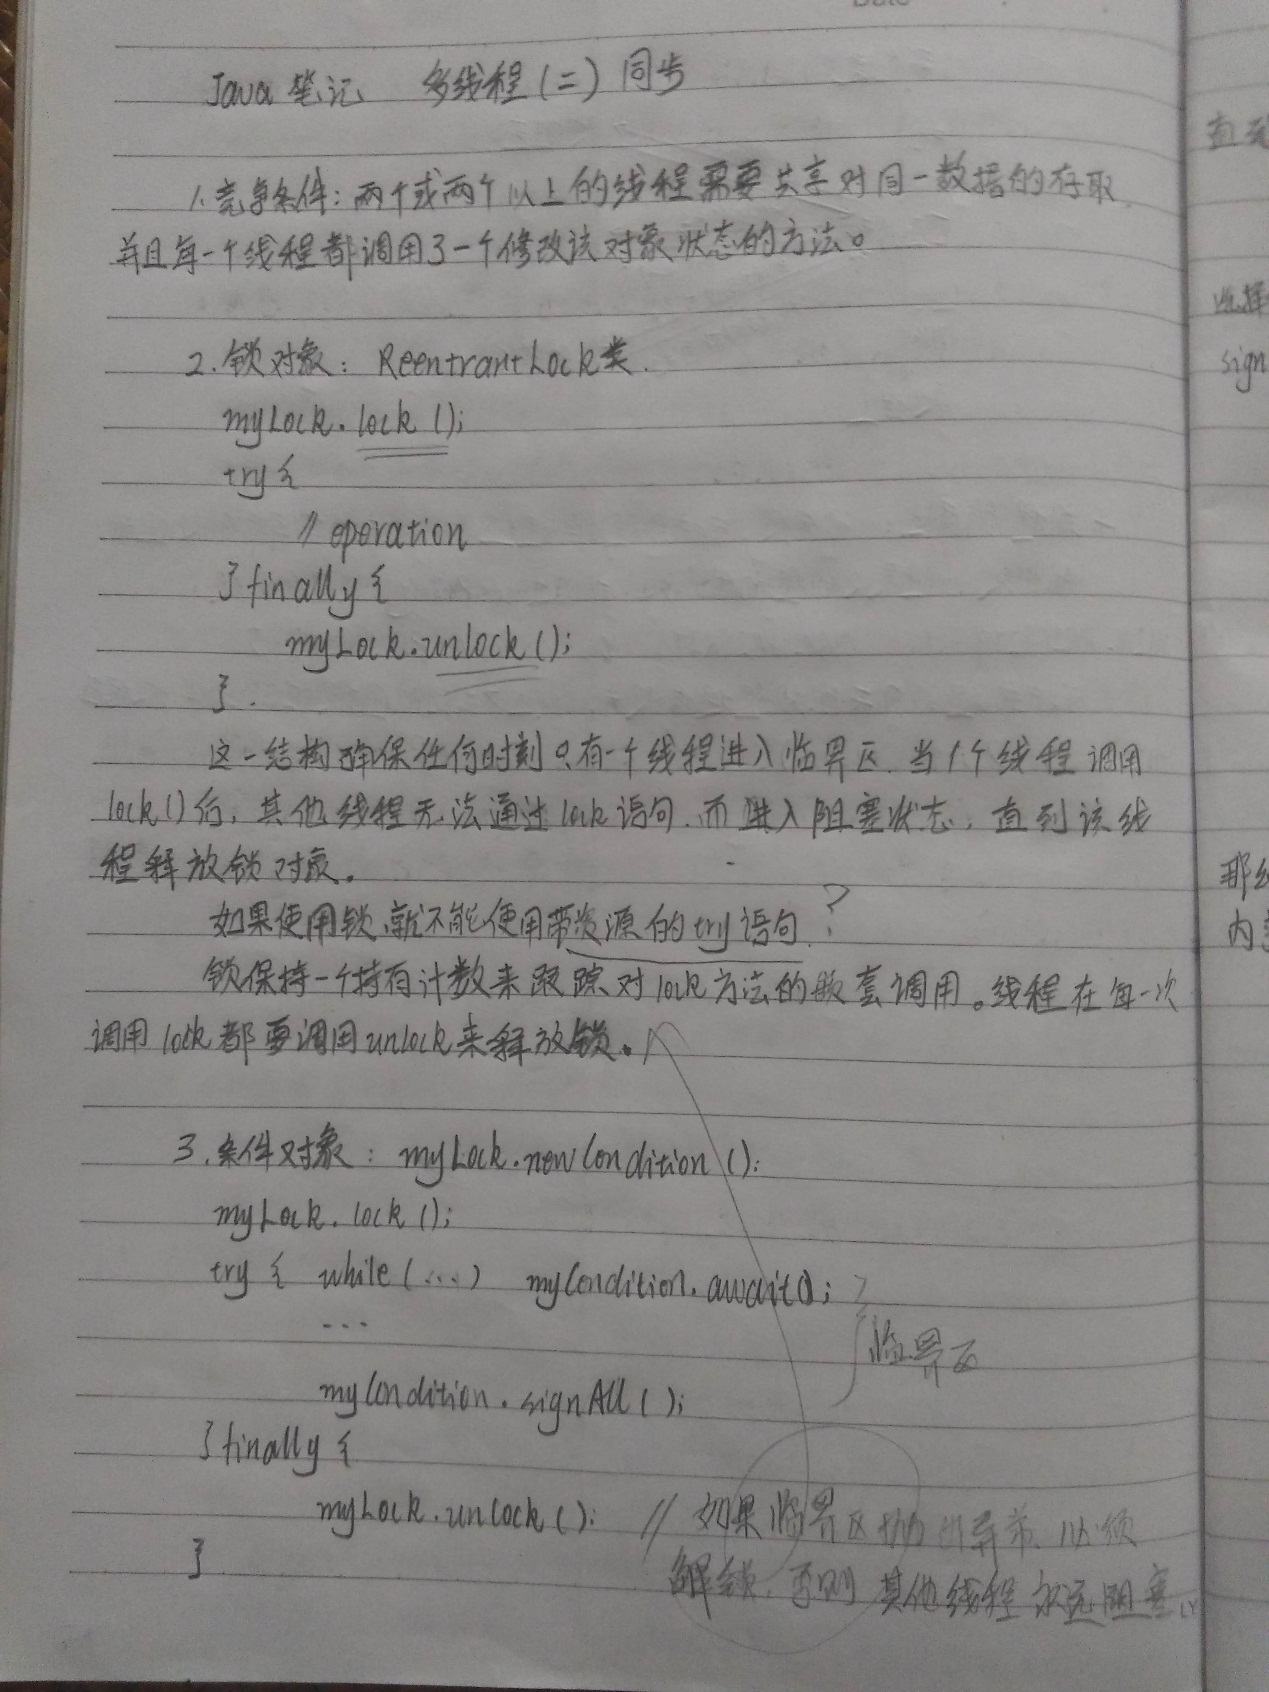 Java 笔记 多线程(二) 同步
1.竞争条件:两个或两个以上的线程需要共享对同一数据的存取,
并且每一个线程都调用了一个修改该对象状态的方法。
2.锁对象: ReentrantLock类.
myLock.lock();
try {
// operation
}finally {
myLock.unlock();
}.
这一结构确保任何时刻只有一个线程进入临界区.当1个线程调用
lock()后,其他线程无法通过lock语句.而进入阻塞状态,直到该线
程释放锁对象.
如果使用锁,就不能使用带资源的try语句.?
锁保持一个持有计数来跟踪对lock方法的嵌套调用。线程在每一次
调用lock都要调用unlock来释放锁。
3.条件对象: myLock.newCondition();
myLock.lock();
try { while(...) myCondition.await();
...
临界区
myCondition.signAll();
}finally {
myLock.unlock(); // 如果临界区抛出异常,必须
}
解锁.否则其他线程永远阻塞.
直到
选择
sign
那
内